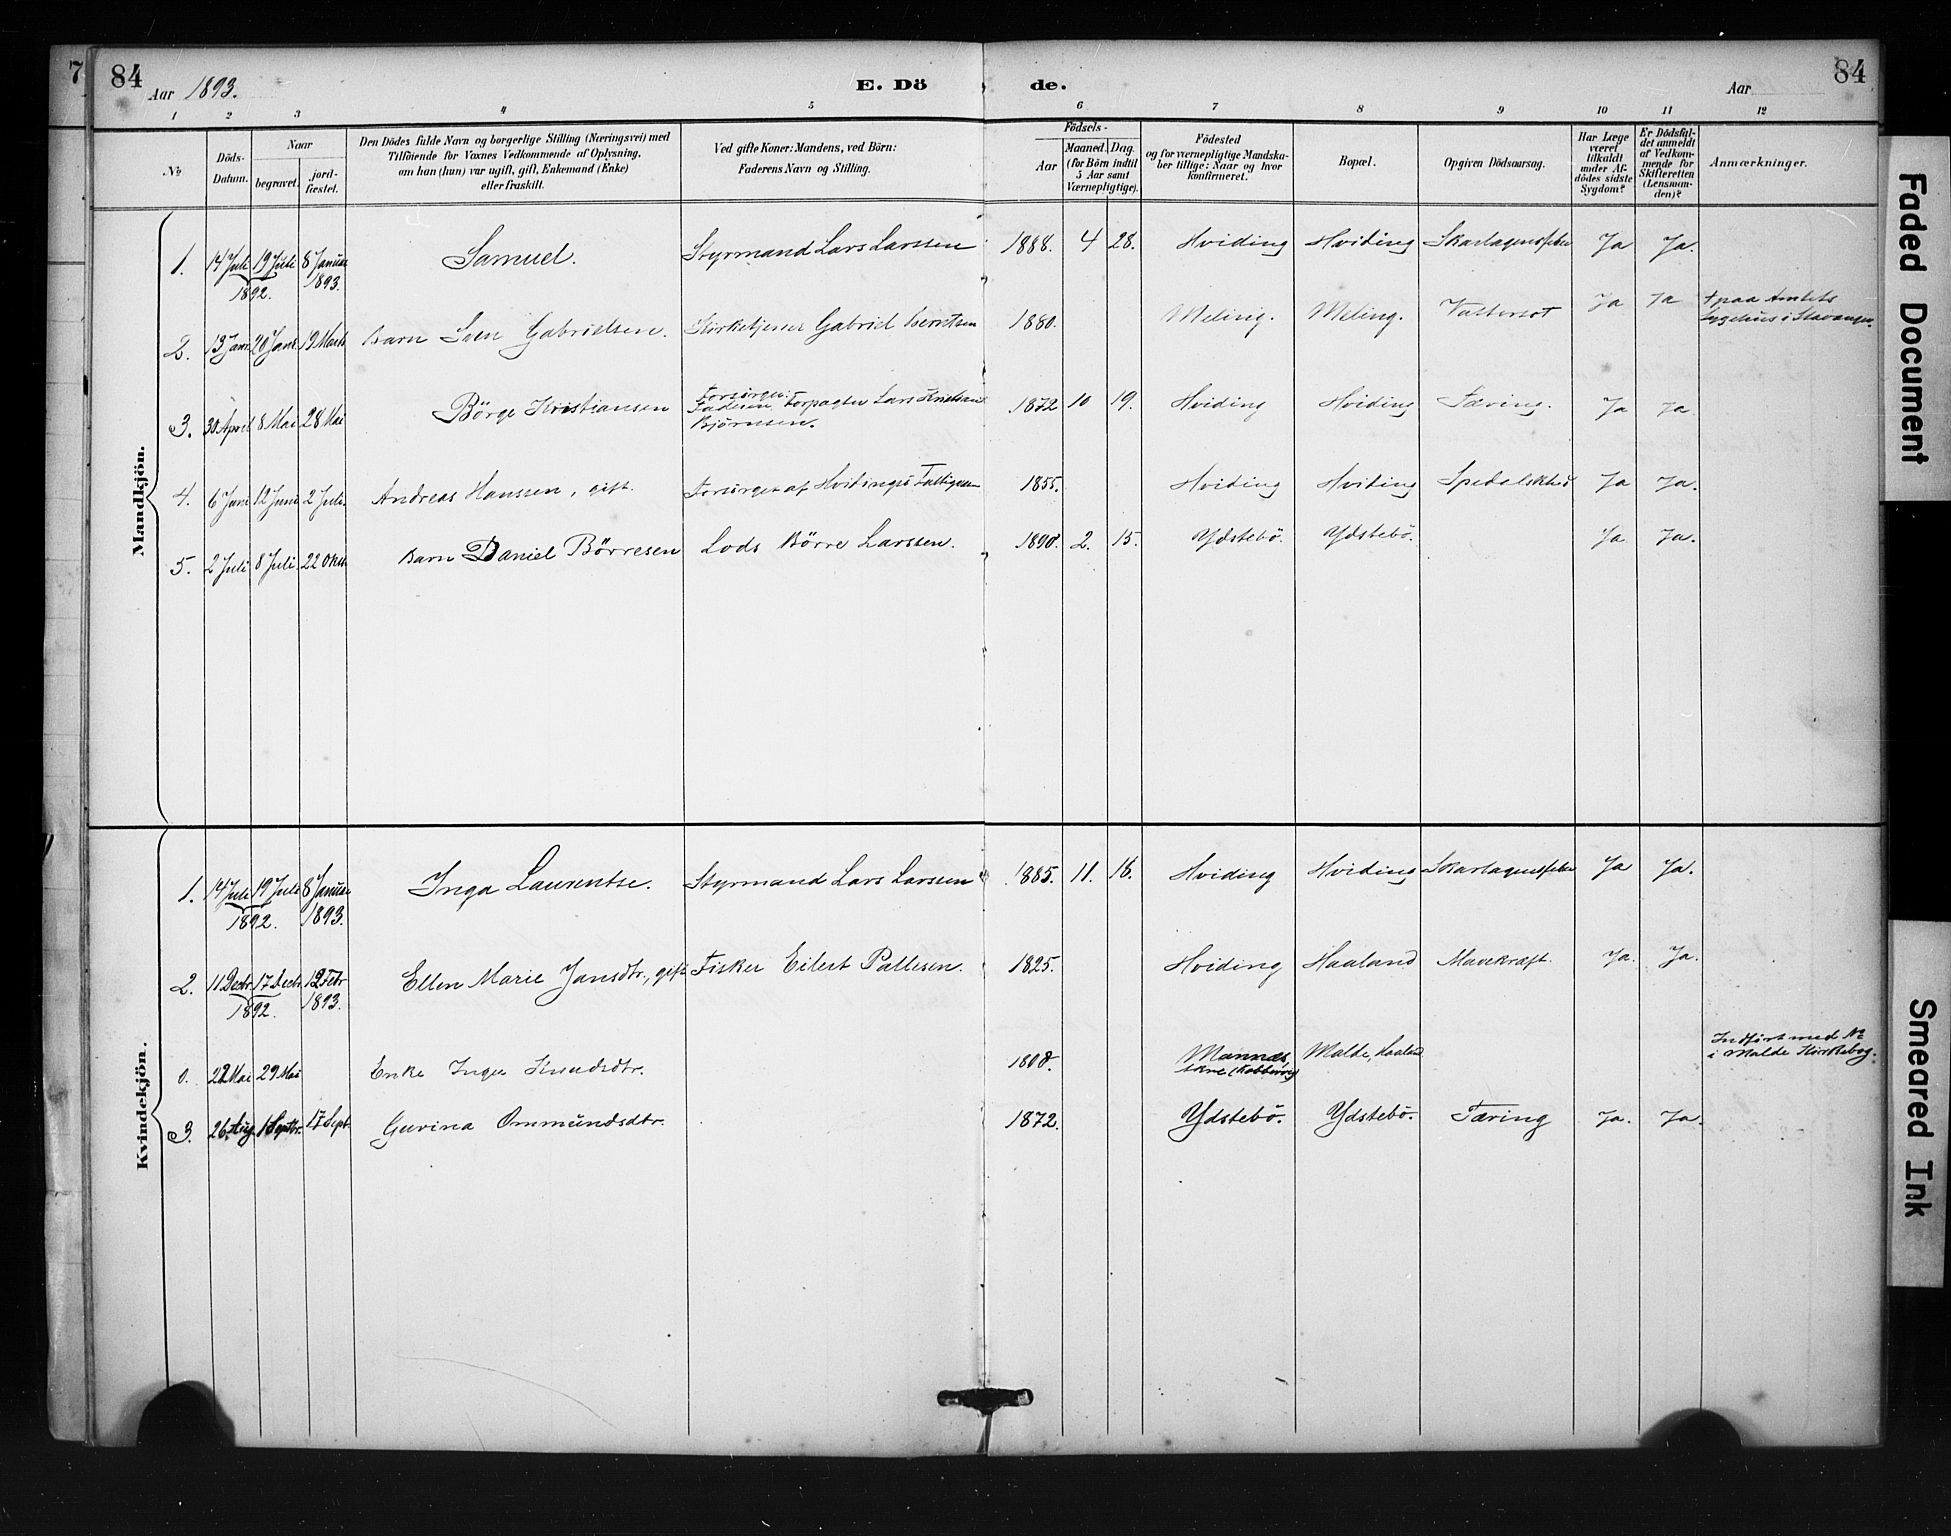 7
84
Aar 1893.
E. Dö de.
Aar
84
1 2 3 4 5 6 7 8 9 10 11 12
№
Döds-Datum.
Naar
begravet.
jord-fæstet.
Den Dödes fulde Navn og borgerlige Stilling (Næringsvei) med
Tilföiende for Voxnes Vedkommende af Oplysning,
om han (hun) var ugift, gift, Enkemand (Enke)
eller fraskilt.
Ved gifte Koner: Mandens, ved Börn:
Faderens Navn og Stilling.
Födsels-
Aar
Maaned. Dag.
(for Börn indtil
5 Aar samt
Værnepligtige).
Födested
og for værnepligtige Mandska-
ber tillige: Naar og hvor
konfirmeret.
Bopæl.
Opgiven Dödsaarsag.
Har Læge
været
tilkaldt
under Af-
dödes sidste
Sygdom?
Er Dödsfal-
det anmeldt
af Vedkom-
mende for
Skifteretten
(Lensman-
den)?
Anmærkninger.
Mandkjön.
1. 14 Juli 19 Juli 1892. 8 Januar 1893. Samuel. Styrmand Lars Larssen 1888. 4 28. Hviding Hviding Skarlagensfeber Ja Ja.
2. 13 Janr. 20 Janr. 19 Marts Barn Sven Gabrielsen. Kirketjener Gabriel Berntsen 1880. Meling. Meling. Vattersot Ja Ja † paa Amtets
Sygehus i Stavanger.
3. 30 April 8 Mai 28 Mai Börge Kristiansen Forsörger:
Faderen, Forpagter Lars Kristian
Bjørnsen. 1872 10 19. Hviding Hviding Tæring. Ja Ja
4. 6 Juni 12 Juni 2 Juli. Andreas Hanssen, gift. Forsörget af Hvidingsö Fattigvæsen 1855. Hviding Hviding Spedalskhed Ja Ja.
5. 2 Juli 8 Juli. 22 Oktr. Barn Daniel Börresen Lods Börre Larssen. 1890. 2. 15. Ydstebö. Ydstebö. Ja Ja.
Kvindekjön.
1. 14 Juli 19 Juli 1892. 8 Januar 1893. Inga Laurentse. Styrmand Lars Larssen 1885. 11. 16. Hviding Hviding Skarlagensfeber Ja Ja.
2. 11 Decbr. 17 Decbr. 1892. 12 Febr 1893. Ellen Marie Jansdtr., gift Fisker Eilert Pallesen. 1825. Hviding Haaland Mavekræft. Ja. Ja.
0. 22 Mai 29 Mai Enke Inger Knudsdtr. 1808. Mannæs, Malde, Haaland Indfört med №
i Malde Kirkebog.
3. 26 Aug. 1 Septbr. 17 Sept. Gurina Ommundsdtr. 1872. Ydstebö. Ydstebö. Tæring Ja. Ja.
Faded Document
Smeared Ink